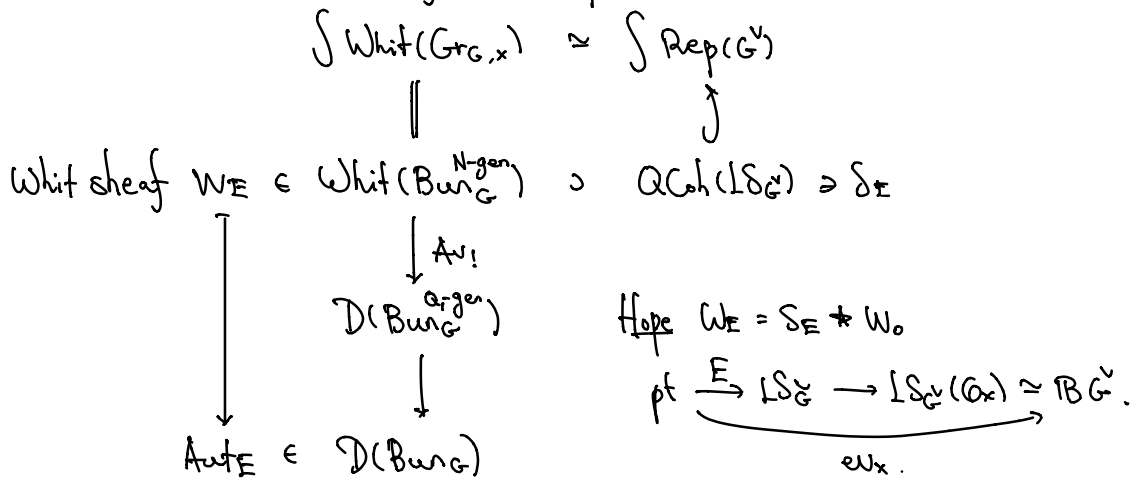 ∫ Whit(Gr_{G,x}) ≃ ∫ Rep(G^∨)
Whit sheaf W_E ∈ Whit(Bun_G^{N-gen}) ⊃ QCoh(LS_{G^∨}) ∋ δ_E
Av_!
D(Bun_G^{Q_i-gen})
Hope W_E = δ_E * W_0
pt →^E LS_{G^∨} → LS_{G^∨}(O_x) ≃ BG^∨.
Aut_E ∈ D(Bun_G)
ev_x.